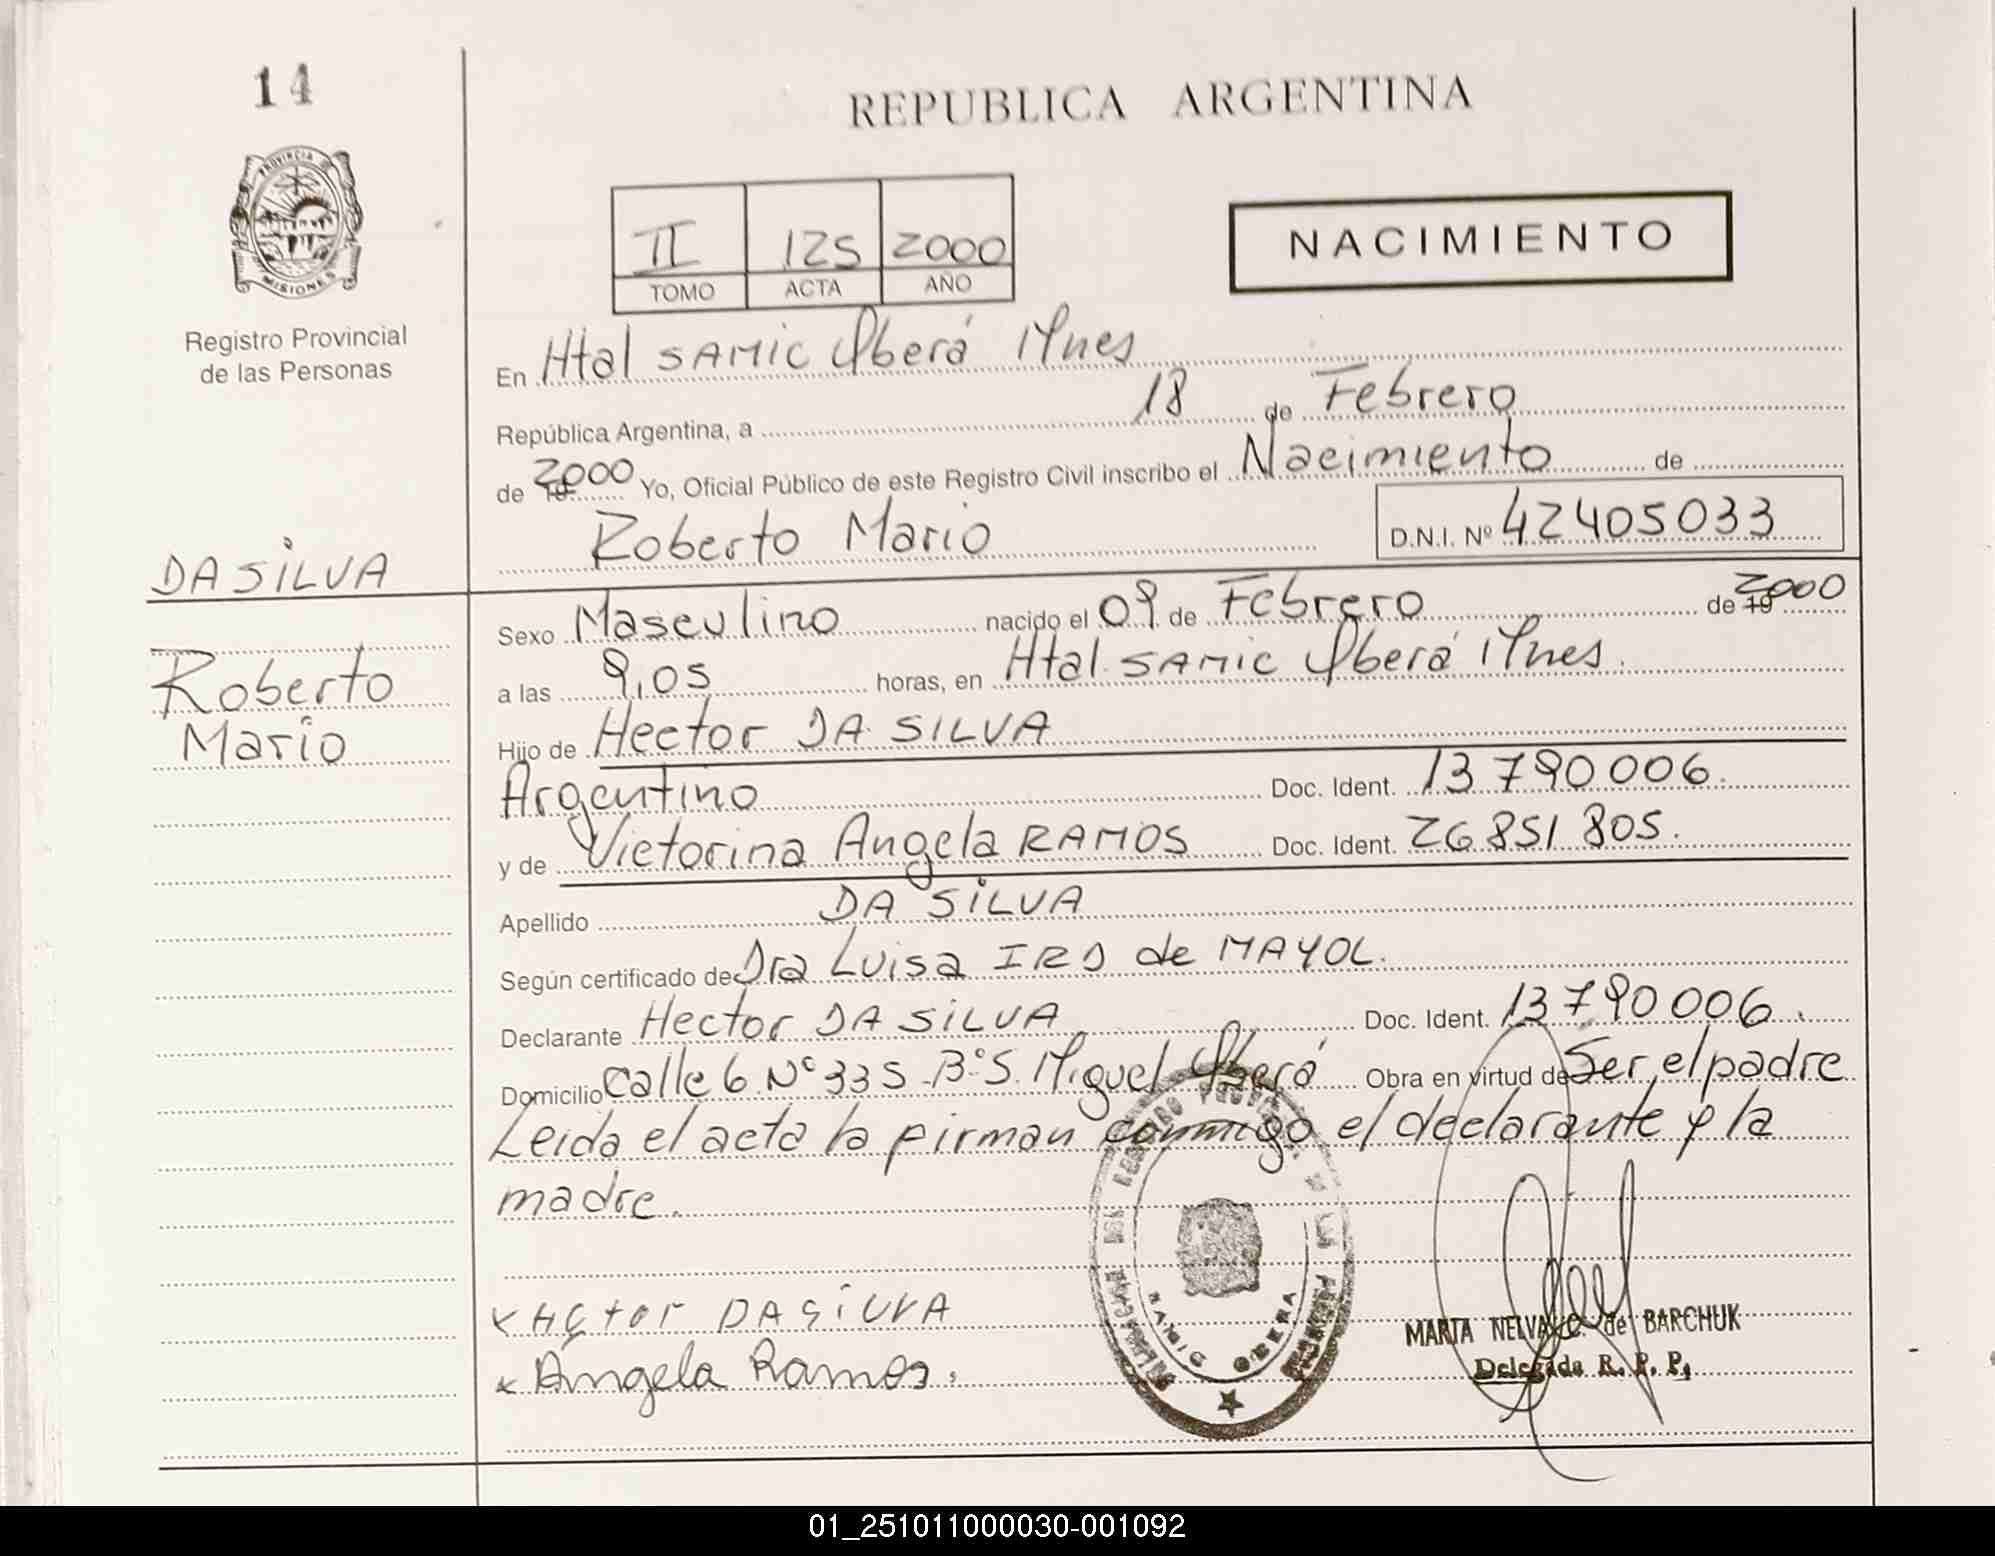 14
REPUBLICA ARGENTINA
PROVINCIA DE
MISIONES
Registro Provincial
de las Personas
II 125 2000
TOMO ACTA AÑO
NACIMIENTO
En Htal SAMIC Oberá Mnes
República Argentina, a 18 de Febrero
de 2000 Yo, Oficial Público de este Registro Civil inscribo el Nacimiento de
Roberto Mario D.N.I. Nº 42405033
DA SILVA
Roberto
Mario
Sexo Masculino nacido el 09 de Febrero de 2000
a las 9,05 horas, en Htal. SAMIC Oberá Mnes.
Hijo de Hector DA SILVA
Argentino Doc. Ident. 13790006.
y de Victorina Angela RAMOS Doc. Ident. 26851805.
Apellido DA SILVA
Según certificado de Dra Luisa de MAYOL.
Declarante Hector DA SILVA Doc. Ident. 13790006.
Domicilio Calle 6 Nº 335 Bº S. Miguel Oberá Obra en virtud de Ser el padre
Leida el acta la firman conmigo el declarante y la
madre.
x HECtor DA SiLVA
x Angela Ramos.
SAMIC OBERA
MARTA NELVA C. de BARCHUK
Delegada R. P. P.
01_251011000030-001092